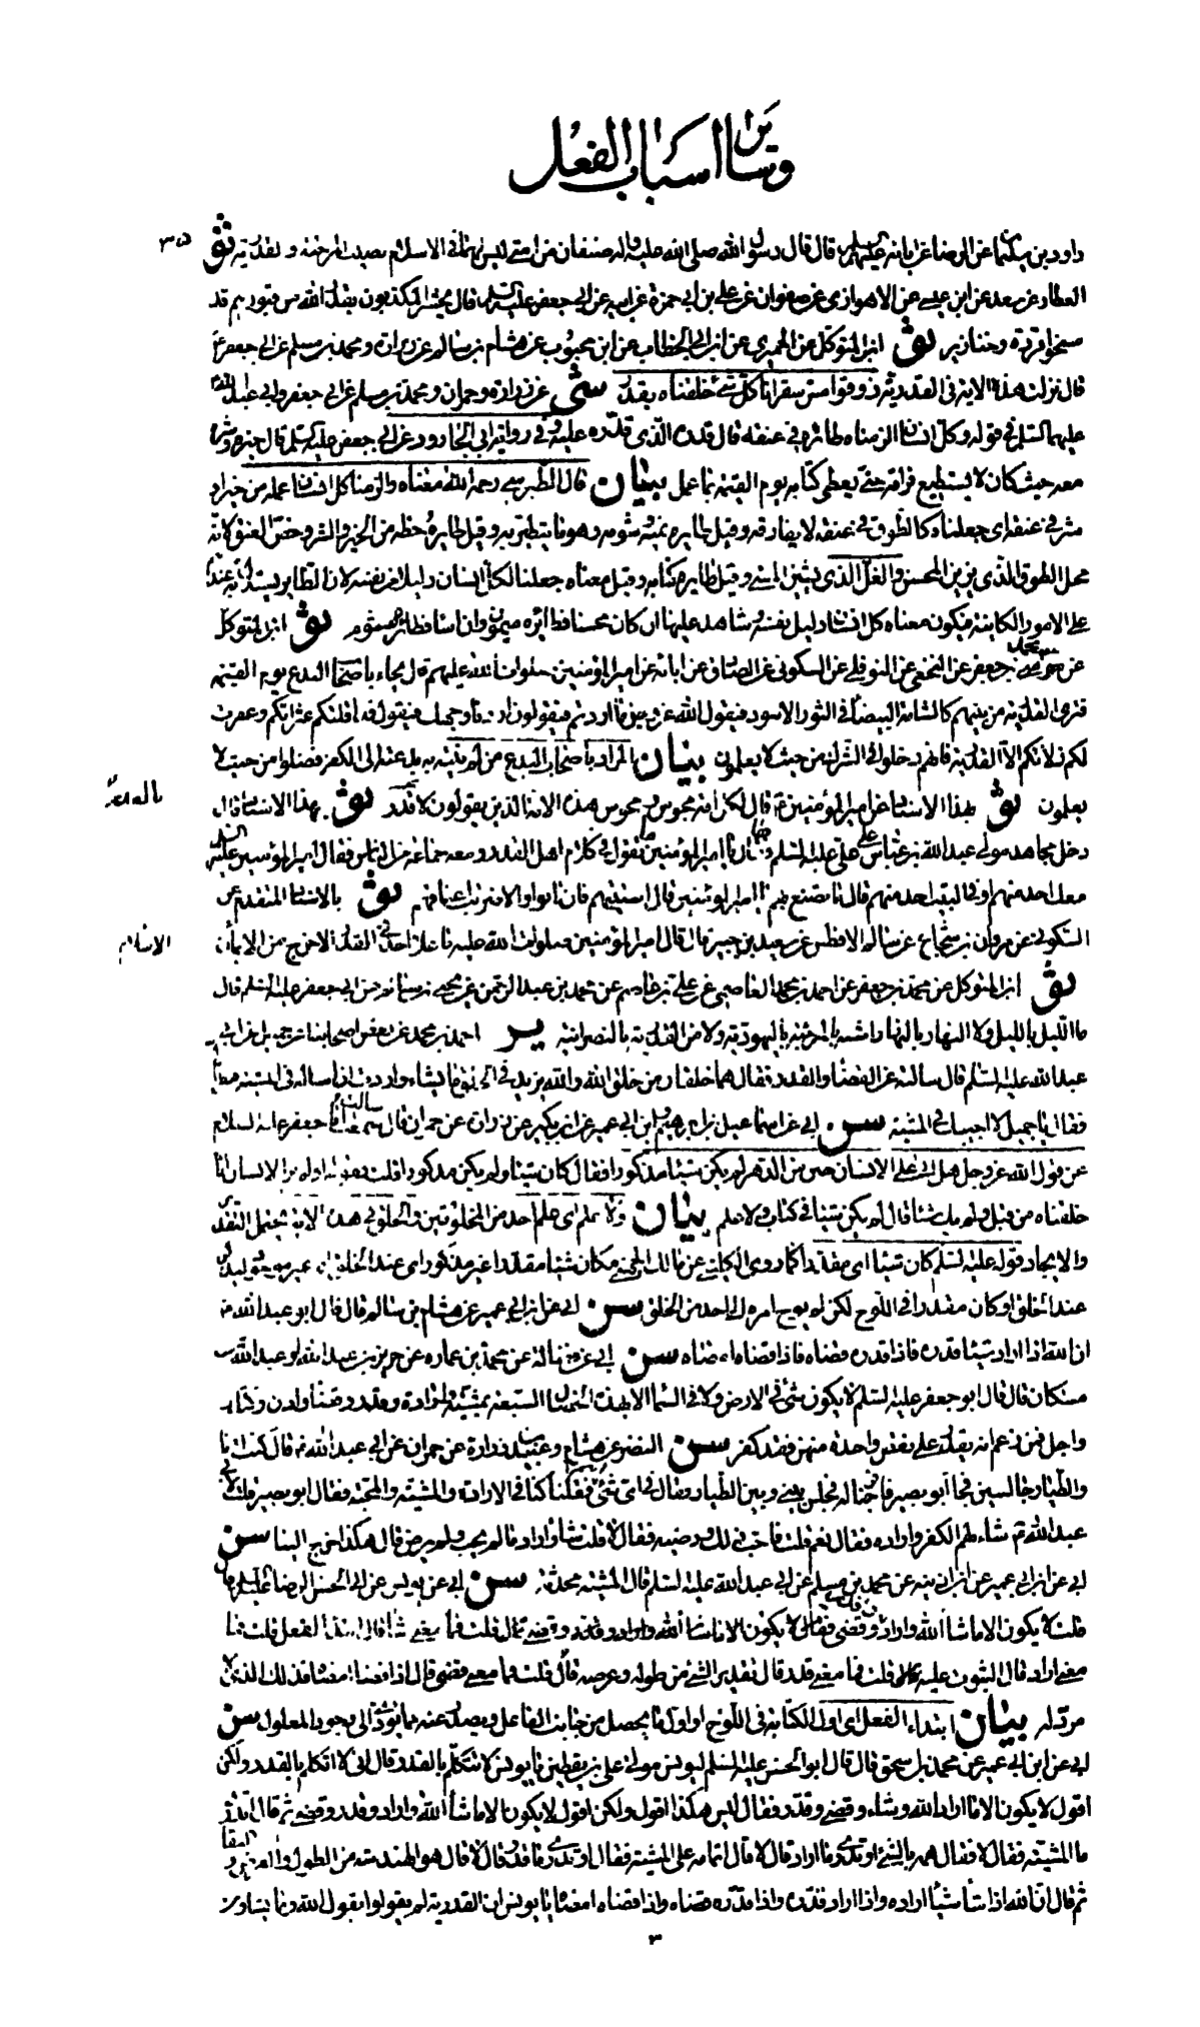 وسائر اسباب الفعل
٣٥
داود بن سليمان عن الرضا عن ابائه عليهم السلم قال قال رسول الله صلى الله عليه واله صنفان من امتي ليس لهما في الاسلام نصيب المرجئة والقدرية ثو
العطار عن سعد عن ابن عيسى عن الاهوازي عن صفوان عن علي بن ابي حمزة عن ابيه عن ابي جعفر عليه السلم قال يحشر المكذبون بقدر الله من قبورهم قد
مسخوا قردة وخنازير ثو ابن المتوكل عن الحميري عن ابن ابي الخطاب عن ابن محبوب عن هشام بن سالم عن زرارة ومحمد بن مسلم عن ابي جعفر ع
قال نزلت هذه الاية في القدرية ذوقوا مس سقر انا كل شئ خلقناه بقدر شى عن زرارة وحمران ومحمد بن مسلم عن ابي جعفر وابي عبد الله
عليهما السلم في قوله وكل انسان الزمناه طائره في عنقه قال قدره الذي قدره عليه وفي رواية ابي الجارود عن ابي جعفر عليه السلم قال خيره وشره
معه حيث كان لا يستطيع فراقه حتى يعطى كتابه يوم القيمة بما عمل بيان قال الطبرسي رحمه الله معناه والزمنا كل انسان عمله من خير او
شر في عنقه اي جعلناه كالطوق في عنقه لا يفارقه وقيل طايره يمنه وشومه وهو ما يتطير به وقيل طايره حظه من الخير والشر وخص العنق لانه
محل الطوق الذي يزين المحسن والغل الذي يشين المسئ وقيل طايره كتابه وقيل معناه جعلنا لكل انسان دليلا من نفسه لان الطاير يستدل به عندهم
على الامور الكاينة فيكون معناه كل انسان دليل نفسه وشاهد عليها ان كان محسنا فطائره ميمون وان اساء فطائره مشوم ثو ابن المتوكل
عن محمد بن جعفر عن النخعي عن النوفلي عن السكوني عن الصادق عن ابائه عن امير المؤمنين صلوات الله عليهم قال يجاء باصحاب البدع يوم القيمة
فترى القدرية من بينهم كالشامة البيضاء في الثور الاسود فيقول الله عز وجل ما اردتم فيقولون اردنا وجهك فيقول قد اقلتكم عثراتكم وغفرت
لكم زلاتكم الا القدرية فانهم دخلوا في الشرك من حيث لا يعلمون بيان المراد باصحاب البدع من لم ينته به بدعته الى الكفر فضلوا من حيث لا
يعلمون ثو بهذا الاسناد عن امير المؤمنين ع قال لكل امة مجوس ومجوس هذه الامة الذين يقولون لا قدر ثو بهذا الاسناد قال
دخل مجاهد مولى عبد الله بن عباس على علي عليه السلم فقال يا امير المؤمنين ما تقول في كلام اهل القدر ومعه جماعة من الناس فقال امير المؤمنين عليه السلم
معك احد منهم او في البيت احد منهم قال ما تصنع بهم يا امير المؤمنين قال استتيبهم فان تابوا والا ضربت اعناقهم ثو بالاسناد المتقدم عن
السكوني عن مروان بن شجاع عن سالم الافطس عن سعيد بن جبير قال قال امير المؤمنين صلوات الله عليه ما غلا احد في القدر الا خرج من الايمان
الاسلام
ثو ابن المتوكل عن محمد بن جعفر عن احمد بن محمد العاصمي عن علي بن عاصم عن محمد بن عبد الرحمن عن يحيى بن سالم عن ابي جعفر عليه السلم قال
ما الليل بالليل ولا النهار بالنهار اشبه بالمرجئة باليهودية ولا من القدرية بالنصرانية ير احمد بن محمد عن بعض اصحابنا عن جميل عن ابي
عبد الله عليه السلم قال سالته عن القضاء والقدر فقال هما خلقان من خلق الله والله يزيد في الخلق ما يشاء واردت ان اساله في المشية فنظر الي
فقال يا جميل لا اجيبك في المشية سن ابي عن اسماعيل بن ابراهيم وابن ابي عمير عن ابن بكير عن زرارة عن حمران قال سالت ابا جعفر عليه السلم
عن قول الله عز وجل هل اتى على الانسان حين من الدهر لم يكن شيئا مذكورا فقال كان شيئا ولم يكن مذكورا قلت فقوله اولم ير الانسان انا
خلقناه من قبل ولم يك شيئا قال لم يكن شيئا في كتاب ولا علم بيان ولا علم اي علم احد من المخلوقين والخلق في هذه الاية يحتمل التقدير
والايجاد قوله عليه السلم كان شيئا اي مقدرا كما روى الكليني عن مالك الجهني مكان شيئا مقدرا غير مذكور اي عند الخلق
عند الخلق او كان مقدرا في اللوح لكن لم يوح امره الى احد من الخلق سن ابي عن ابن ابي عمير عن هشام بن سالم قال قال ابو عبد الله ع
ان الله اذا اراد شيئا قدره فاذا قدره قضاه فاذا قضاه امضاه سن ابي عن فضالة عن محمد بن عمارة عن حريز بن عبد الله او عبد الله بن
مسكان قال قال ابو جعفر عليه السلم لا يكون شئ في الارض ولا في السماء الا بهذه الخصال السبعة بمشية وارادة وقدر وقضاء واذن وكتاب
واجل فمن زعم انه يقدر على نقص واحدة منهن فقد كفر سن النضر عن هشام وعبيد بن زرارة عن حمران عن ابي عبد الله ع قال كنت انا
والطيار جالسين فجاء ابو بصير فافرجنا له فجلس بيني وبين الطيار فقال في اي شئ انتم فقلنا كنا في الارادة والمشية والمحبة فقال ابو بصير قلت لابي
عبد الله ع شاء لهم الكفر واراده فقال نعم قلت فاحب ذلك ورضيه فقال لا قلت شاء واراد ما لم يحب ولم يرض قال هكذا خرج الينا سن
ابي عن ابن ابي عمير عن ابن اذينة عن محمد بن مسلم عن ابي عبد الله عليه السلم قال المشية محدثة سن ابي عن يونس عن ابي الحسن الرضا عليه السلم قال
قلت لا يكون الا ما شاء الله واراد وقضى فقال لا يكون الا ما شاء الله واراد وقدر وقضى قال قلت فما معنى شاء قال ابتداء الفعل قلت فما
معنى اراد قال الثبوت عليه قلت فما معنى قدر قال تقدير الشئ من طوله وعرضه قال قلت فما معنى قضى قال اذا قضاه امضاه فذلك الذي لا
مرد له بيان ابتداء الفعل اي اول الكتابة في اللوح او اول ما يحصل من جانب الفاعل ويصدر عنه مما يؤدي الى وجود المعلول سن
ابي عن ابن ابي عمير عن محمد بن اسحق قال قال ابو الحسن عليه السلم ليونس مولى علي بن يقطين يا يونس لا تتكلم بالقدر قال اني لا اتكلم بالقدر ولكن
اقول لا يكون الا ما اراد الله وشاء وقضى وقدر فقال ليس هكذا اقول ولكن اقول لا يكون الا ما شاء الله واراد وقدر وقضى ثم قال اتدري
ما المشية فقال لا فقال همه بالشئ او تدري ما اراد قال لا قال اتمامه على المشية فقال او تدري ما قدر قال لا قال هو الهندسة من الطول والعرض والبقاء
ثم قال ان الله اذا شاء شيئا اراده واذا اراد قدره واذا قدره قضاه واذا قضاه امضاه يا يونس ان القدرية لم يقولوا بقول الله وما تشاؤن
٣